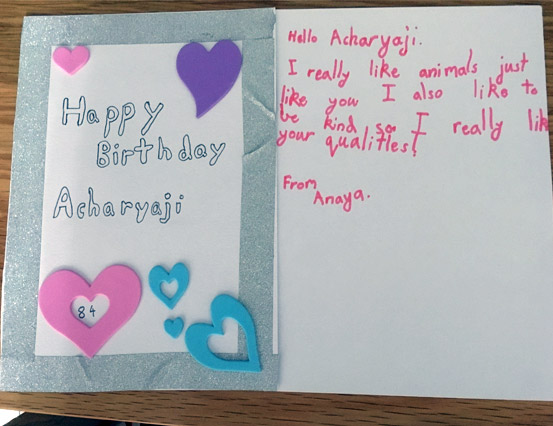 Happy
Birthday
Acharyaji
84
Hello Acharyaji.
I really like animals just
like you I also like to
be kind so I really lik
your qualities!
From
Anaya.